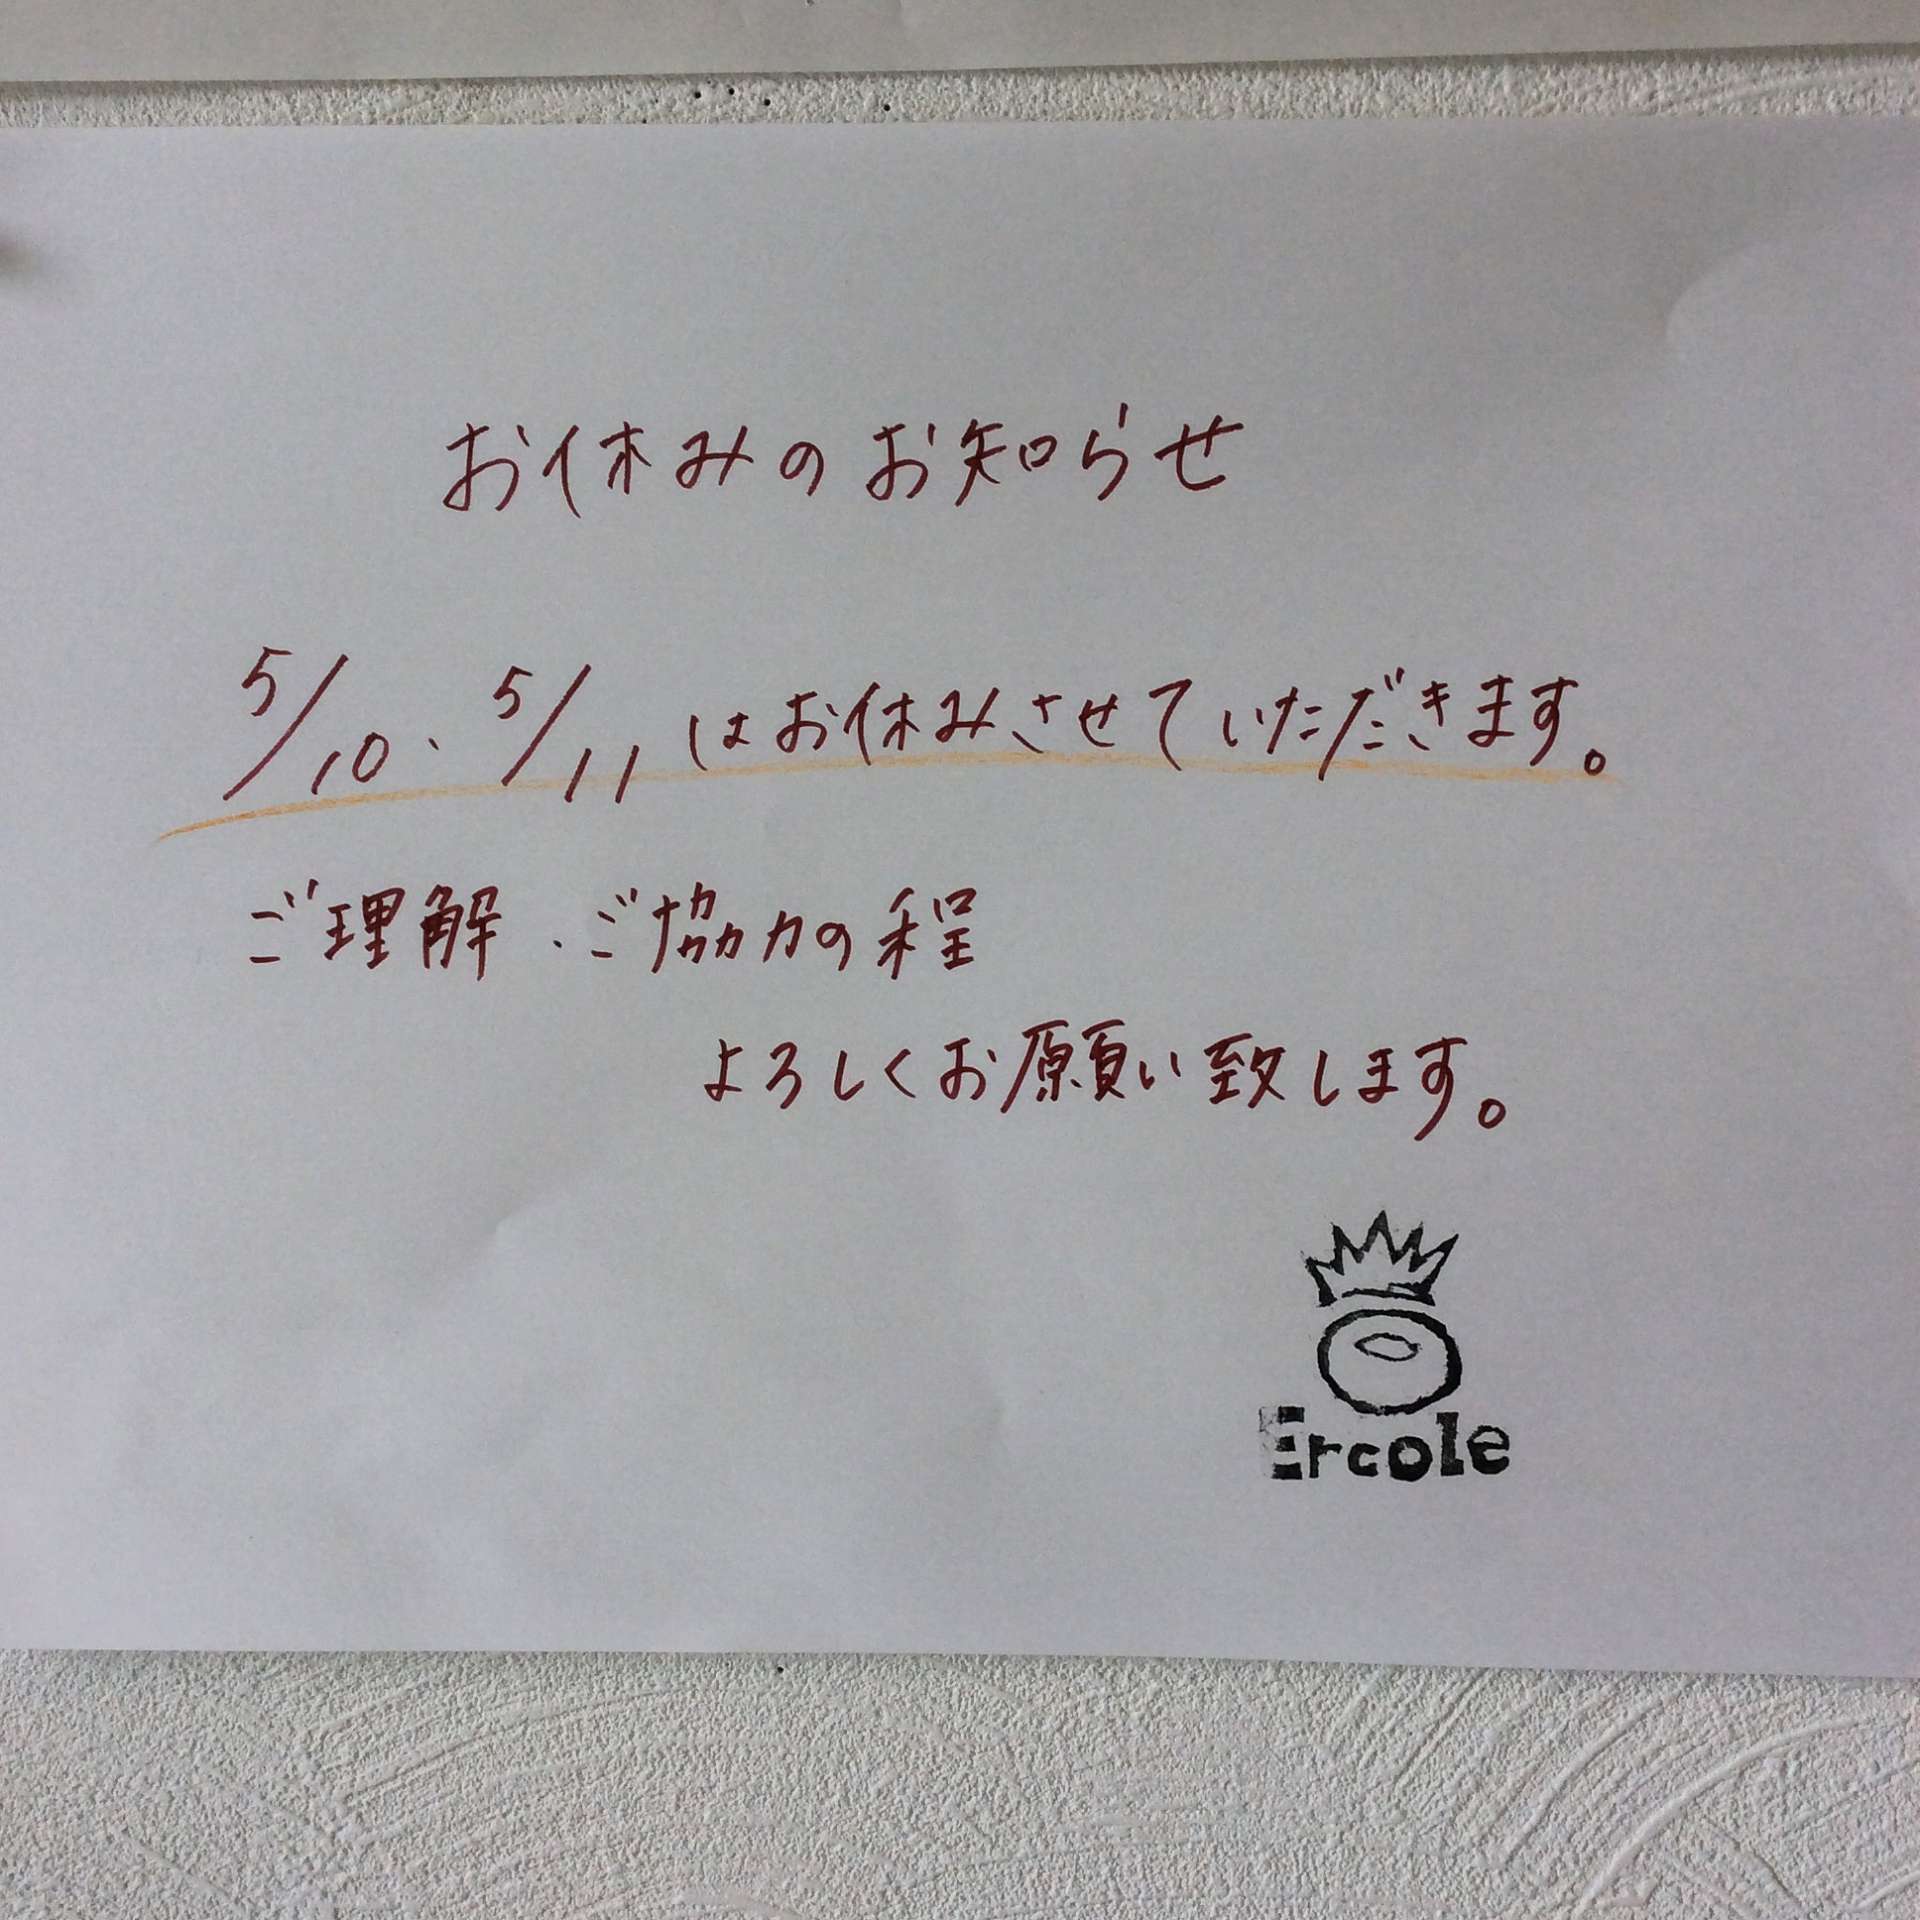 お休みのお知らせ
5/10、5/11はお休みさせていただきます。
ご理解・ご協力の程
よろしくお願い致します。
Ercole